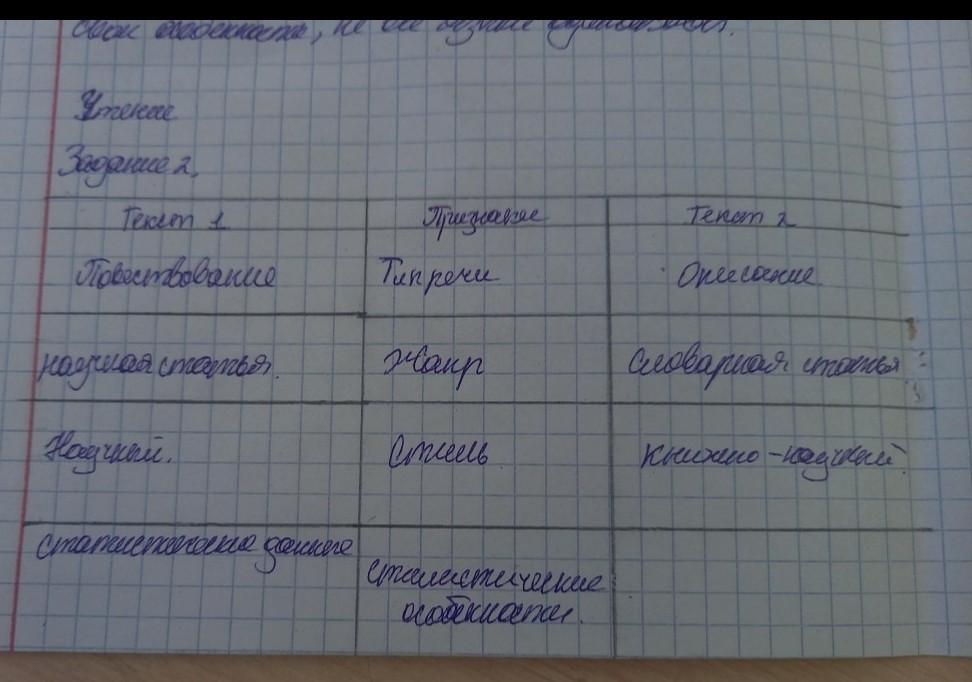 свои особенности, не
Чтение
Задание 2.
Текст 1 Признание Текст 2
Повествование Тип речи Описание
научная статья. Жанр Словарная статья
Научный. Стиль книжно-научный
статистические данные
стилистические
особенности.